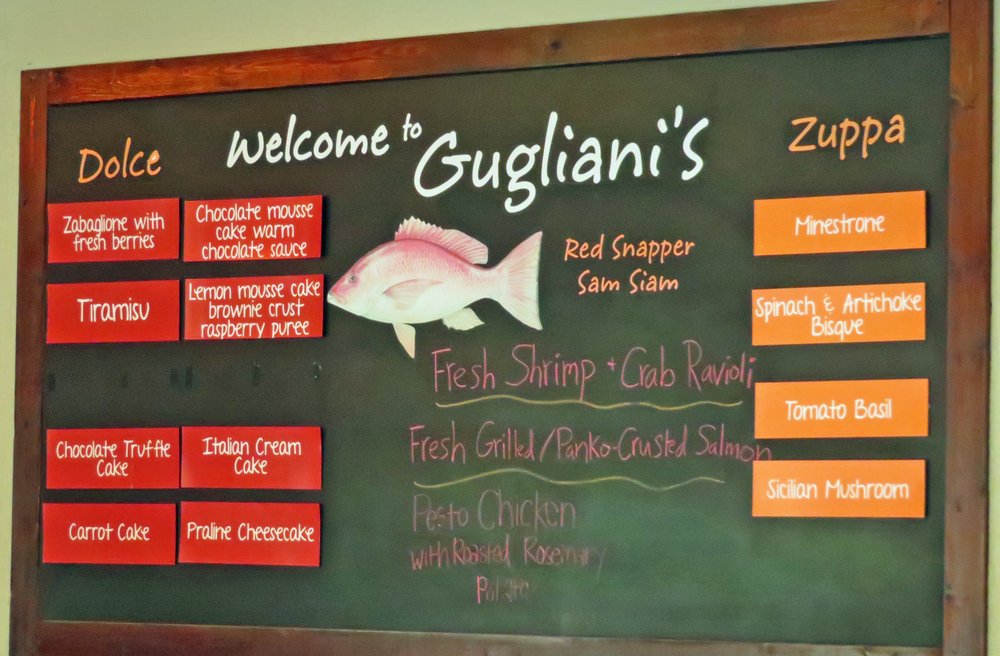 Welcome to
Gugliani's
Dolce
Zabaglione with
fresh berries
Chocolate mousse
cake warm
chocolate sauce
Tiramisu
Lemon mousse cake
brownie crust
raspberry puree
Chocolate Truffle
Cake
Italian Cream
Cake
Carrot Cake
Praline Cheesecake
Red Snapper
Sam Siam
Fresh Shrimp + Crab Ravioli
Fresh Grilled/Panko-Crusted Salmon
Pesto Chicken
with Roasted Rosemary
Potato
Zuppa
Minestrone
Spinach & Artichoke
Bisque
Tomato Basil
Sicilian Mushroom